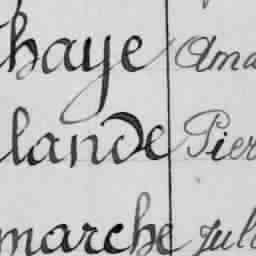 haye Ama
lande Pier
marche Jule